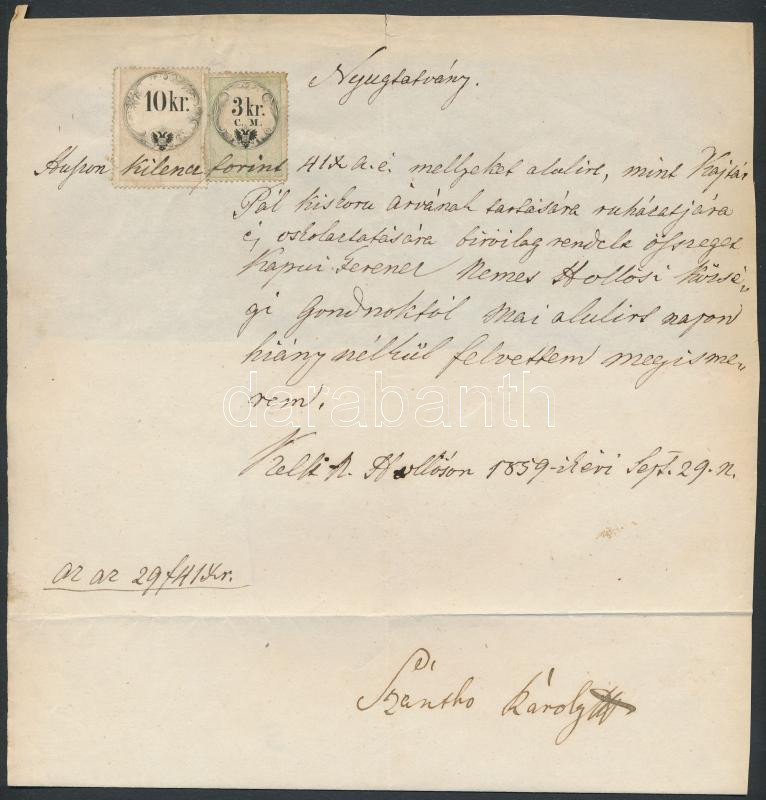 Nyugtatvány.
10 kr.
3 kr.
C. M.
Huszon kilencz forint 41x a.é. mellyeket alulirt, mint Kajtár
Pál kiskoru Árvának tartására ruházatjára
és oskolaztatására biróilag rendelt összeget
Kapui Ferencz Nemes Hollósi Közsé-
gi Gondnoktól Mai alulirt napon
hiány nélkül felvettem megisme-
rem.
darabanth
Kelt N. Hollóson 1859-ik évi Sept. 29. n.
az az 29f 41xr.
Szántho Károly